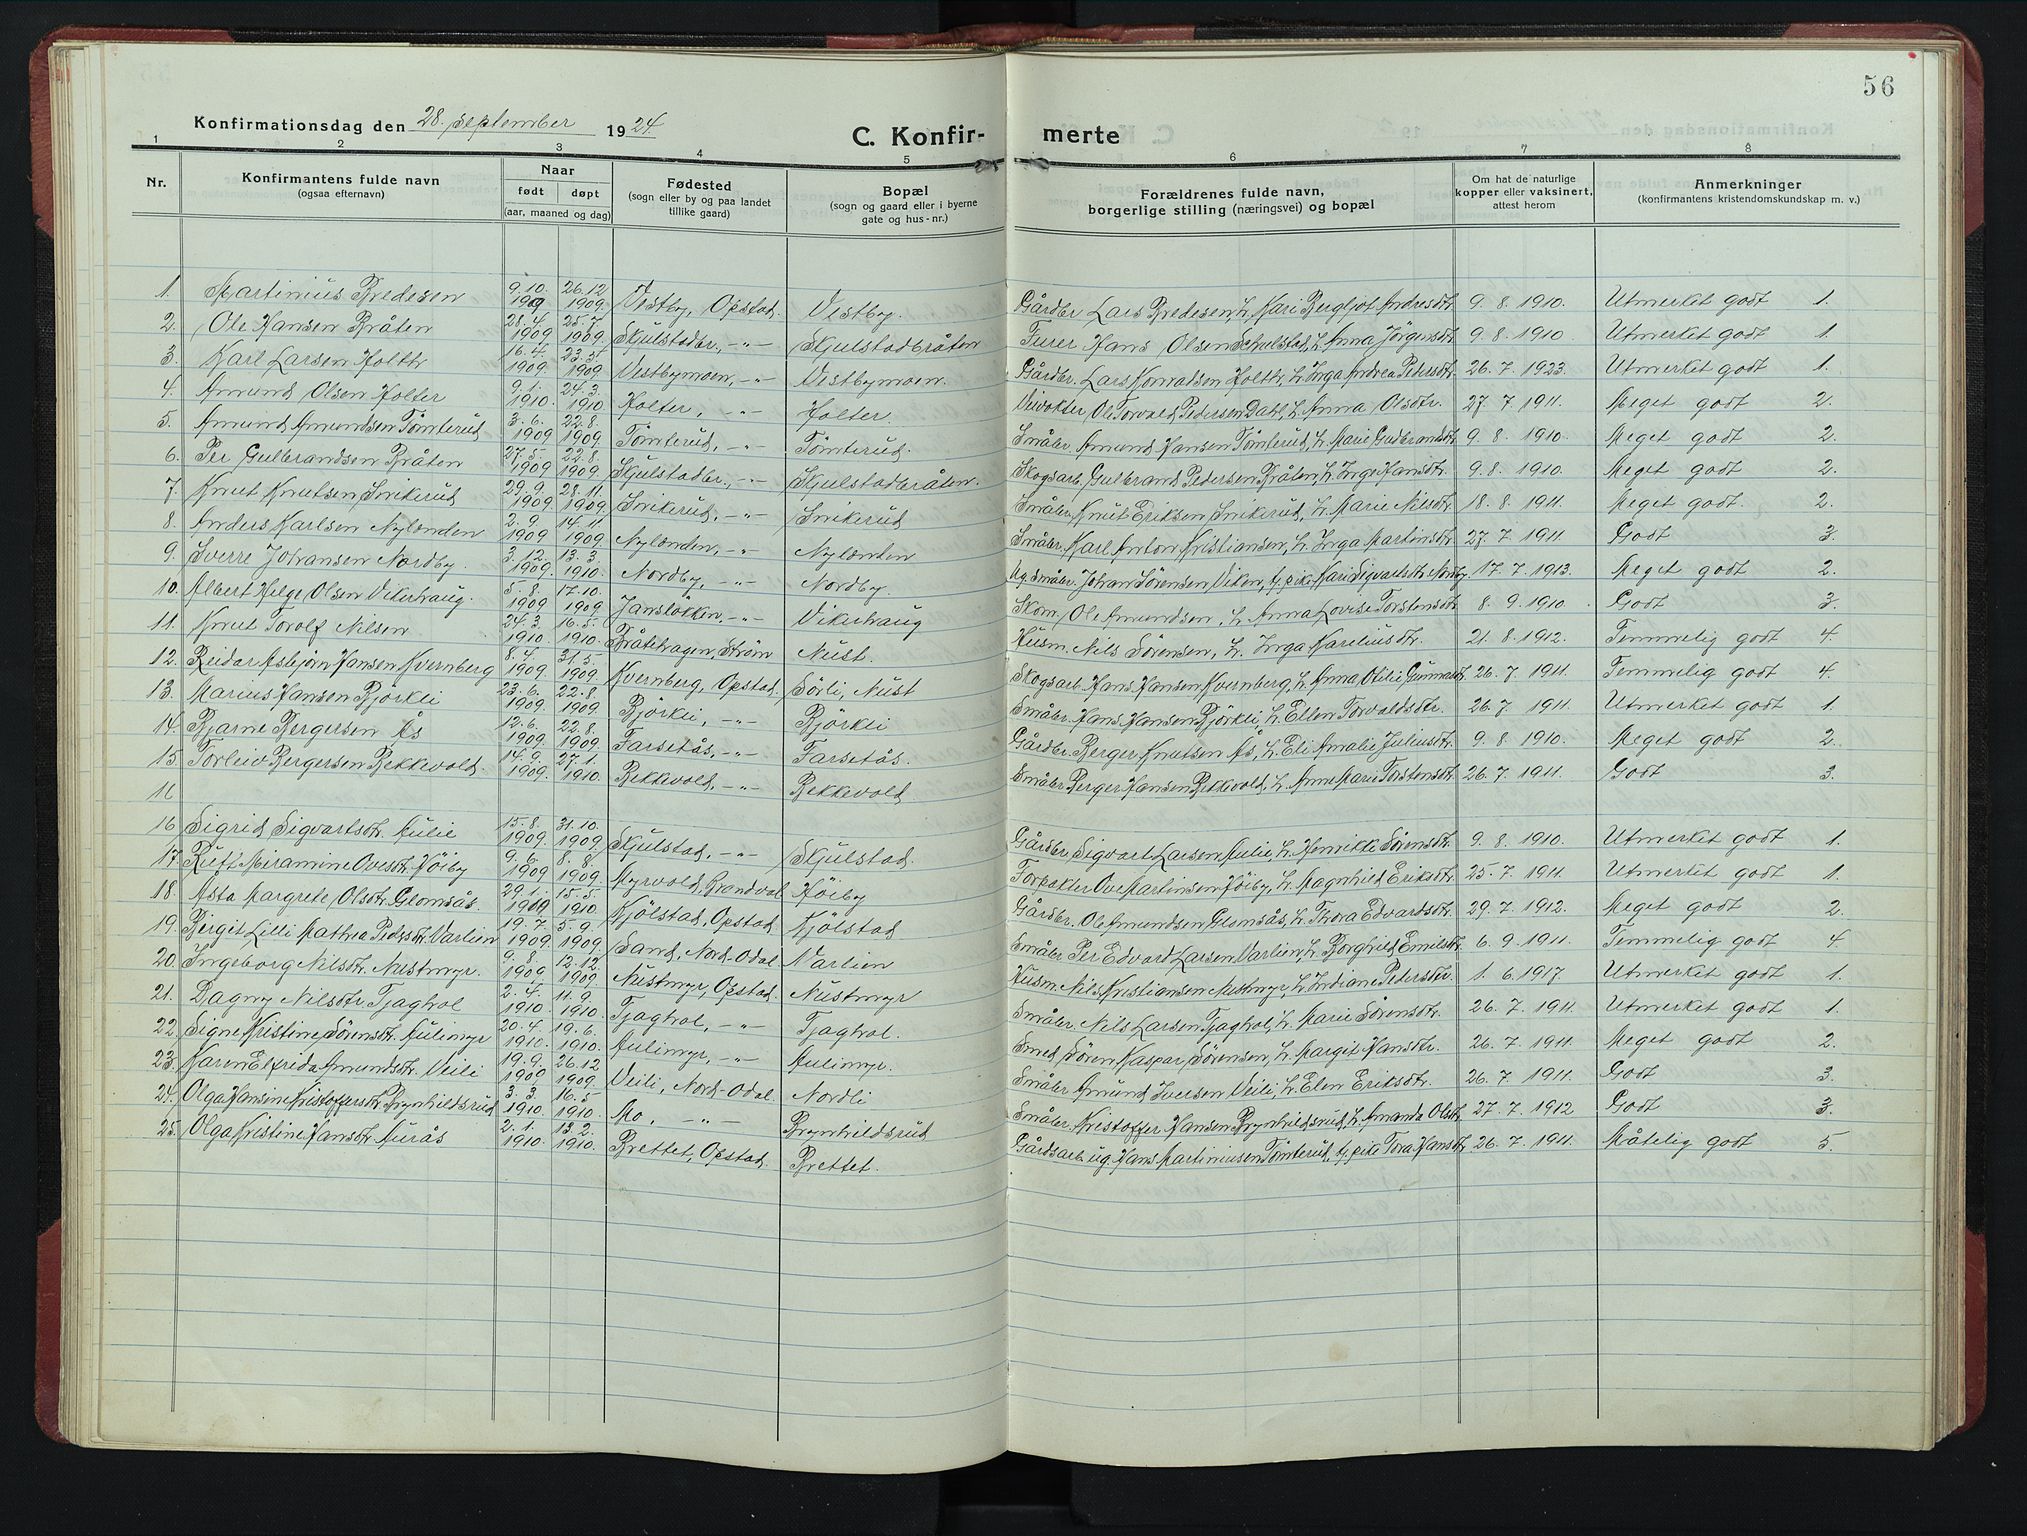 56
Konfirmationsdag den 28. september 1924.
C. Konfir- merte
1 2 3 4 5 6 7 8
Nr.
Konfirmantens fulde navn
(ogsaa efternavn)
Naar
født døpt
(aar, maaned og dag)
Fødested
(sogn eller by og paa landet
tillike gaard)
Bopæl
(sogn og gaard eller i byerne
gate og hus-nr.)
Forældrenes fulde navn,
borgerlige stilling (næringsvei) og bopæl
Om hat de naturlige
kopper eller vaksinert,
attest herom
Anmerkninger
(konfirmantens kristendomskundskap m. v.)
1. Martinius Bredesen 9.10. 1909 26.12 1909. Vestby, Opstad. Vestby. Gårdbr. Lars Bredesen, h. Kari Bergljot Andresdtr. 9. 8. 1910. Utmerket godt 1.
2. Ole Hansen Bråten 28.4. 1909 25.7. 1909. Skjulstadbr., -"- Skjulstadbråten Hans Olsen Skjulstad, h. Anna Jörgensdtr. 9. 8. 1910. Utmerket godt 1.
3. Karl Larsen Holth 16.4. 1909. 23.5. 1909 Vestbymoen, -"- Vestbymoen. Gårdbr. Lars Konradsen Holth, h. Inga Andrea Petersdtr. 26. 7. 1923. Utmerket godt 1.
4. Amund Olsen Holter 9.1. 1910. 24.3. 1910 Holter, -"- Holter. Veivokter Ole Torvald Pedersen Dahl, h. Anna Olsdtr. 27. 7. 1911. Meget godt 2.
5. Amund Amundsen Tömterud 3.6. 1909 22.8. 1909. Tömterud, -"- Tömterud. Småbr. Amund Hansen Tömterud, h. Marie Gudbrandsdtr. 9. 8. 1910. Meget godt 2.
6. Per Gulbrandsen Bråten 27.5. 1909 22.8. 1909 Skjulstadbr., -"- Skjulstadbråten. Skogsarb. Gulbrand Pedersen Bråten, h. Inge Hansdtr. 9. 8. 1910. Meget godt 2.
7. Knut Knutsen Snikerud 29.9. 1909 28.11. 1909. Snikerud, -"- Snikerud Småbr. Knut Eriksen Snikerud, h. Marie Nilsdtr. 18. 8. 1911. Meget godt. 2.
8. Anders Karlsen Nylenden 2.9. 1909 14.11. 1909. Nylenden, -"- Nylenden Småbr. Karl Anton Kristiansen, h. Inga Martinsdtr. 27. 7. 1911. Godt 3.
9. Sverre Johansen Nordby. 3.12. 1909. 13.3. 1910. Nordby, -"- Nordby. Ug. småbr. Johan Sörensen Viken, og pike Kari Sigvartsdtr. Nordby. 17. 7. 1913. Meget godt 2.
10. Albert Helge Olsen Vikerhaug. 5.8. 1909 17.10. 1909 Jansløkken, -"- Vikerhaug Skom. Ole Amundsen, h. Anna Lovise Torstensdtr. 8. 9. 1910. Godt 3.
11. Knut Torolf Nilsen 24.3. 1910. 16.5. 1910. Bråtehagen, Ström Nust. Husm. Nils Sörensen, h. Inga Kareliusdtr. 21. 8. 1912. Temmelig godt 4.
12. Reidar Asbjörn Hansen Kvernberg 8.4. 1909 31.5. 1909. Kvernberg, Opstad. Sörli, Nust Skogsarb. Hans Hansen Kvernberg, h. Anna Otilie Gunnarsdtr. 26. 7. 1911. Temmelig godt 4.
13. Marius Hansen Björkli 23.6. 1909. 22.8. 1909. Björkli, -"- Björkli Småbr. Hans Hansen Björkli, h. Ellen Torvaldsdtr. 26. 7 1911. Utmerket godt 1.
14. Bjarne Bergersen Ås 12.6. 1909. 22.8. 1909. Farsetås, -"- Farsetås. Gårdbr. Berger Knutsen Ås, h. Eli Amalie Juliusdtr. 9. 8. 1910. Meget godt 2.
15. Torleiv Bergersen Bekkevold. 14.9. 1909. 27.1. 1910. Bekkevold, -"- Bekkevold. Småbr. Berger Hansen Bekkevold, h. Anne Marie Torstensdtr. 26. 7. 1911. Godt 3.
11
16 Sigrid Sigvartsdtr. Aulie 15.8. 1909. 31.10. 1909. Skjulstad, -"- Skjulstad. Gårdbr. Sigvart Larsen Aulie, h. Henrikke Sörensdtr. 9. 8. 1910. Utmerket godt 1.
17. Ruth Miramine Ovesdtr. Höiby 9.6. 1909 8.8. 1909. Myrvold, Brandval Höiby Forpakter Ove Martinsen Höiby, h. Magnhild Eriksdtr. 25. 7. 1911. Utmerket godt 1.
18. Asta Margrete Olsdtr. Glomsås. 29.1. 1909 15.5. 1910. Kjölstad, Opstad Kjölstad Gårdbr. Ole Amundsen Glomsås, h. Thora Edvardsdtr. 29. 7. 1912. Meget godt 2.
19. Birgit Lilli Mathea Pedersdtr. Varlien 19.7. 1909. 5.9. 1909. Sand, Nord-Odal Varlien Småbr. Per Edvard Larsen Varlien, h. Borghild Emilsdtr. 6. 9. 1911. Temmelig godt 4.
20. Ingeborg Nilsdtr. Nustmyr. 9.8. 1909 12.12. 1909 Nustmyr, Opstad. Nustmyr Husm. Nils Kristiansen Nustmyr, h. Indiane Petersdtr. 1. 6. 1917. Utmerket godt 1.
21. Dagny Nilsdtr. Tjaghol 2.4. 1910. 11.9. 1910. Tjaghol, -"- Tjaghol. Småbr. Nils Larsen Tjaghol, h. Marie Sörensdtr. 26. 7. 1911. Utmerket godt 1.
22. Signe Kristine Sörensdtr. Aulimyr 20.4. 1910. 19.6. 1910. Aulimyr, -"- Aulimyr. Smed Sören Kaspar Sörensen, h. Margit Hansdtr. 26. 7. 1911. Meget godt 2.
23. Karen Elfrida Amundsdtr. Veili 19.9. 1909 26.12 1909. Veili, Nord-Odal Nordli Småbr. Amund Iversen Veili, h. Elen Eriksdtr. 26. 7. 1911. Godt 3.
24. Olga Hansine Kristoffersdtr. Brynhildsrud 3.3. 1910. 16.5 1910. Mo, -"- Brynhildsrud Småbr. Kristoffer Hansen Brynhildsrud, h. Amanda Olsdtr. 27. 7. 1912 Godt 3.
25. Olga Kristine Hansdtr. Aurås 2.1. 1910. 13.2. 1910. Brettet, Opstad. Brettet. Gårdsarb. ug. Hans Martiniusen Tömterud, og pike Tora Hansdtr. 26. 7. 1911. Måtelig godt 5.